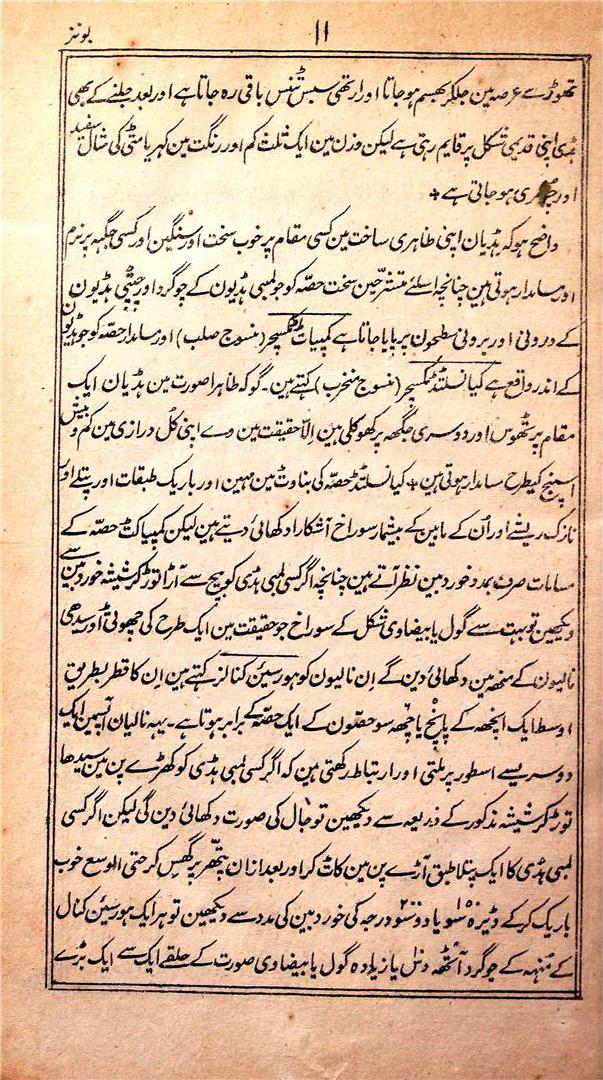 بونز
۱۱
تھوڑے عرصہ مین جلکر بھسم ہوجاتا اور ارتھی سبس ٹنس باقی رہ جاتا ہے اور بعد جلنے کے بھی
ہڈی اپنی قدیمی شکل پر قایم رہتی ہے لیکن وزن مین ایک ثلث کم اور رنگت مین کھریا مٹی کی مثال سفید
اور بھربھری ہوجاتی ہے +
واضح ہو کہ ہڈیان اپنی ظاہری ساخت مین کسی مقام پر خوب سخت اور سنگین اور کسی جگہہ پر نرم
اور مسامدار ہوتی ہین چنانچہ اسلئے متشرحین سخت حصّہ کو جو لمبی ہڈیون کے چوگرد اور چپٹی ہڈیون
کے درونی اور برونی سطحون پر پایا جاتا ہے کمپیاکٹ ٹکسچر (منسوج صلب) اور مسامدار حصّہ کو جو ہڈیون
کے اندر واقع ہے کیانسلٹڈ ٹکسچر (منسوج متخرب) کہتے ہین ۔ گو کہ ظاہرا صورت مین ہڈیان ایک
مقام پر ٹھوس اور دوسری جگھہ پر کھوکلی ہین اِلّا حقیقت مین وے اپنی کُل درازی مین کم و بیش
اسپنج کیطرح مسامدار ہوتی ہین + کیانسلٹڈ حصّہ کی بناوٹ مین مہین اور باریک طبقات اور پتلے اور
نازک ریشے اور اُن کے مابین کے بیشمار سوراخ آشکارا دکھائی دیتے ہین لیکن کمپیاکٹ حصّہ کے
مسامات صرف بمدد خوردبین نظر آتے ہین چنانچہ اگر کسی لمبی ہڈی کو بیچ سے آڑا توڑ کر شیشہ خوردبین سے
دیکھین تو بہت سے گول یا بیضاوی شکل کے سوراخ جو حقیقت مین ایک طرح کی چھوٹی اور سیدھی
نالیون کے منھہ ہین دکھائی دین گے اِن نالیون کو ہورسیَن کنالز کہتے ہین اِن کا قطر بطریق
اوسط ایک انچھہ کے پانچ یا چھہ سو حصّون کے ایک حصّہ کے برابر ہوتا ہے ۔ یہہ نالیان آپسمین ایک
دوسریسے اسطور پر ملتی اور ارتباط رکھتی ہین کہ اگر کسی لمبی ہڈی کو کھڑے پن مین سیدھا
توڑ کر شیشہ مذکور کے ذریعہ سے دیکھین تو جال کی صورت دکھائی دین گی لیکن اگر کسی
لمبی ہڈی کا ایک پتلا طبق آڑے پن مین کاٹ کر اور بعد ازان پتھّر پر گھِس کر حتی الوسع خوب
باریک کرکے ڈیڑہ سو یا دو سو درجہ کی خوردبین کی مدد سے دیکھین تو ہر ایک ہورسیَن کنال
کے مُنہہ کے چوگرد آٹھہ دس یا زیادہ گول یا بیضاوی صورت کے حلقے ایک سے ایک بڑے